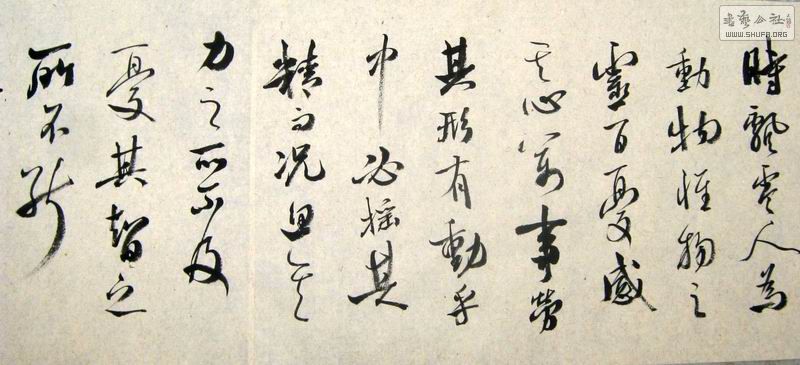 時飄零人為
動物惟物之
靈百憂感
其心萬事勞
其形有動乎
中必搖其
精而況思其
力之所不及
憂其智之
所不能
書藝公社
WWW.SHUFA.ORG